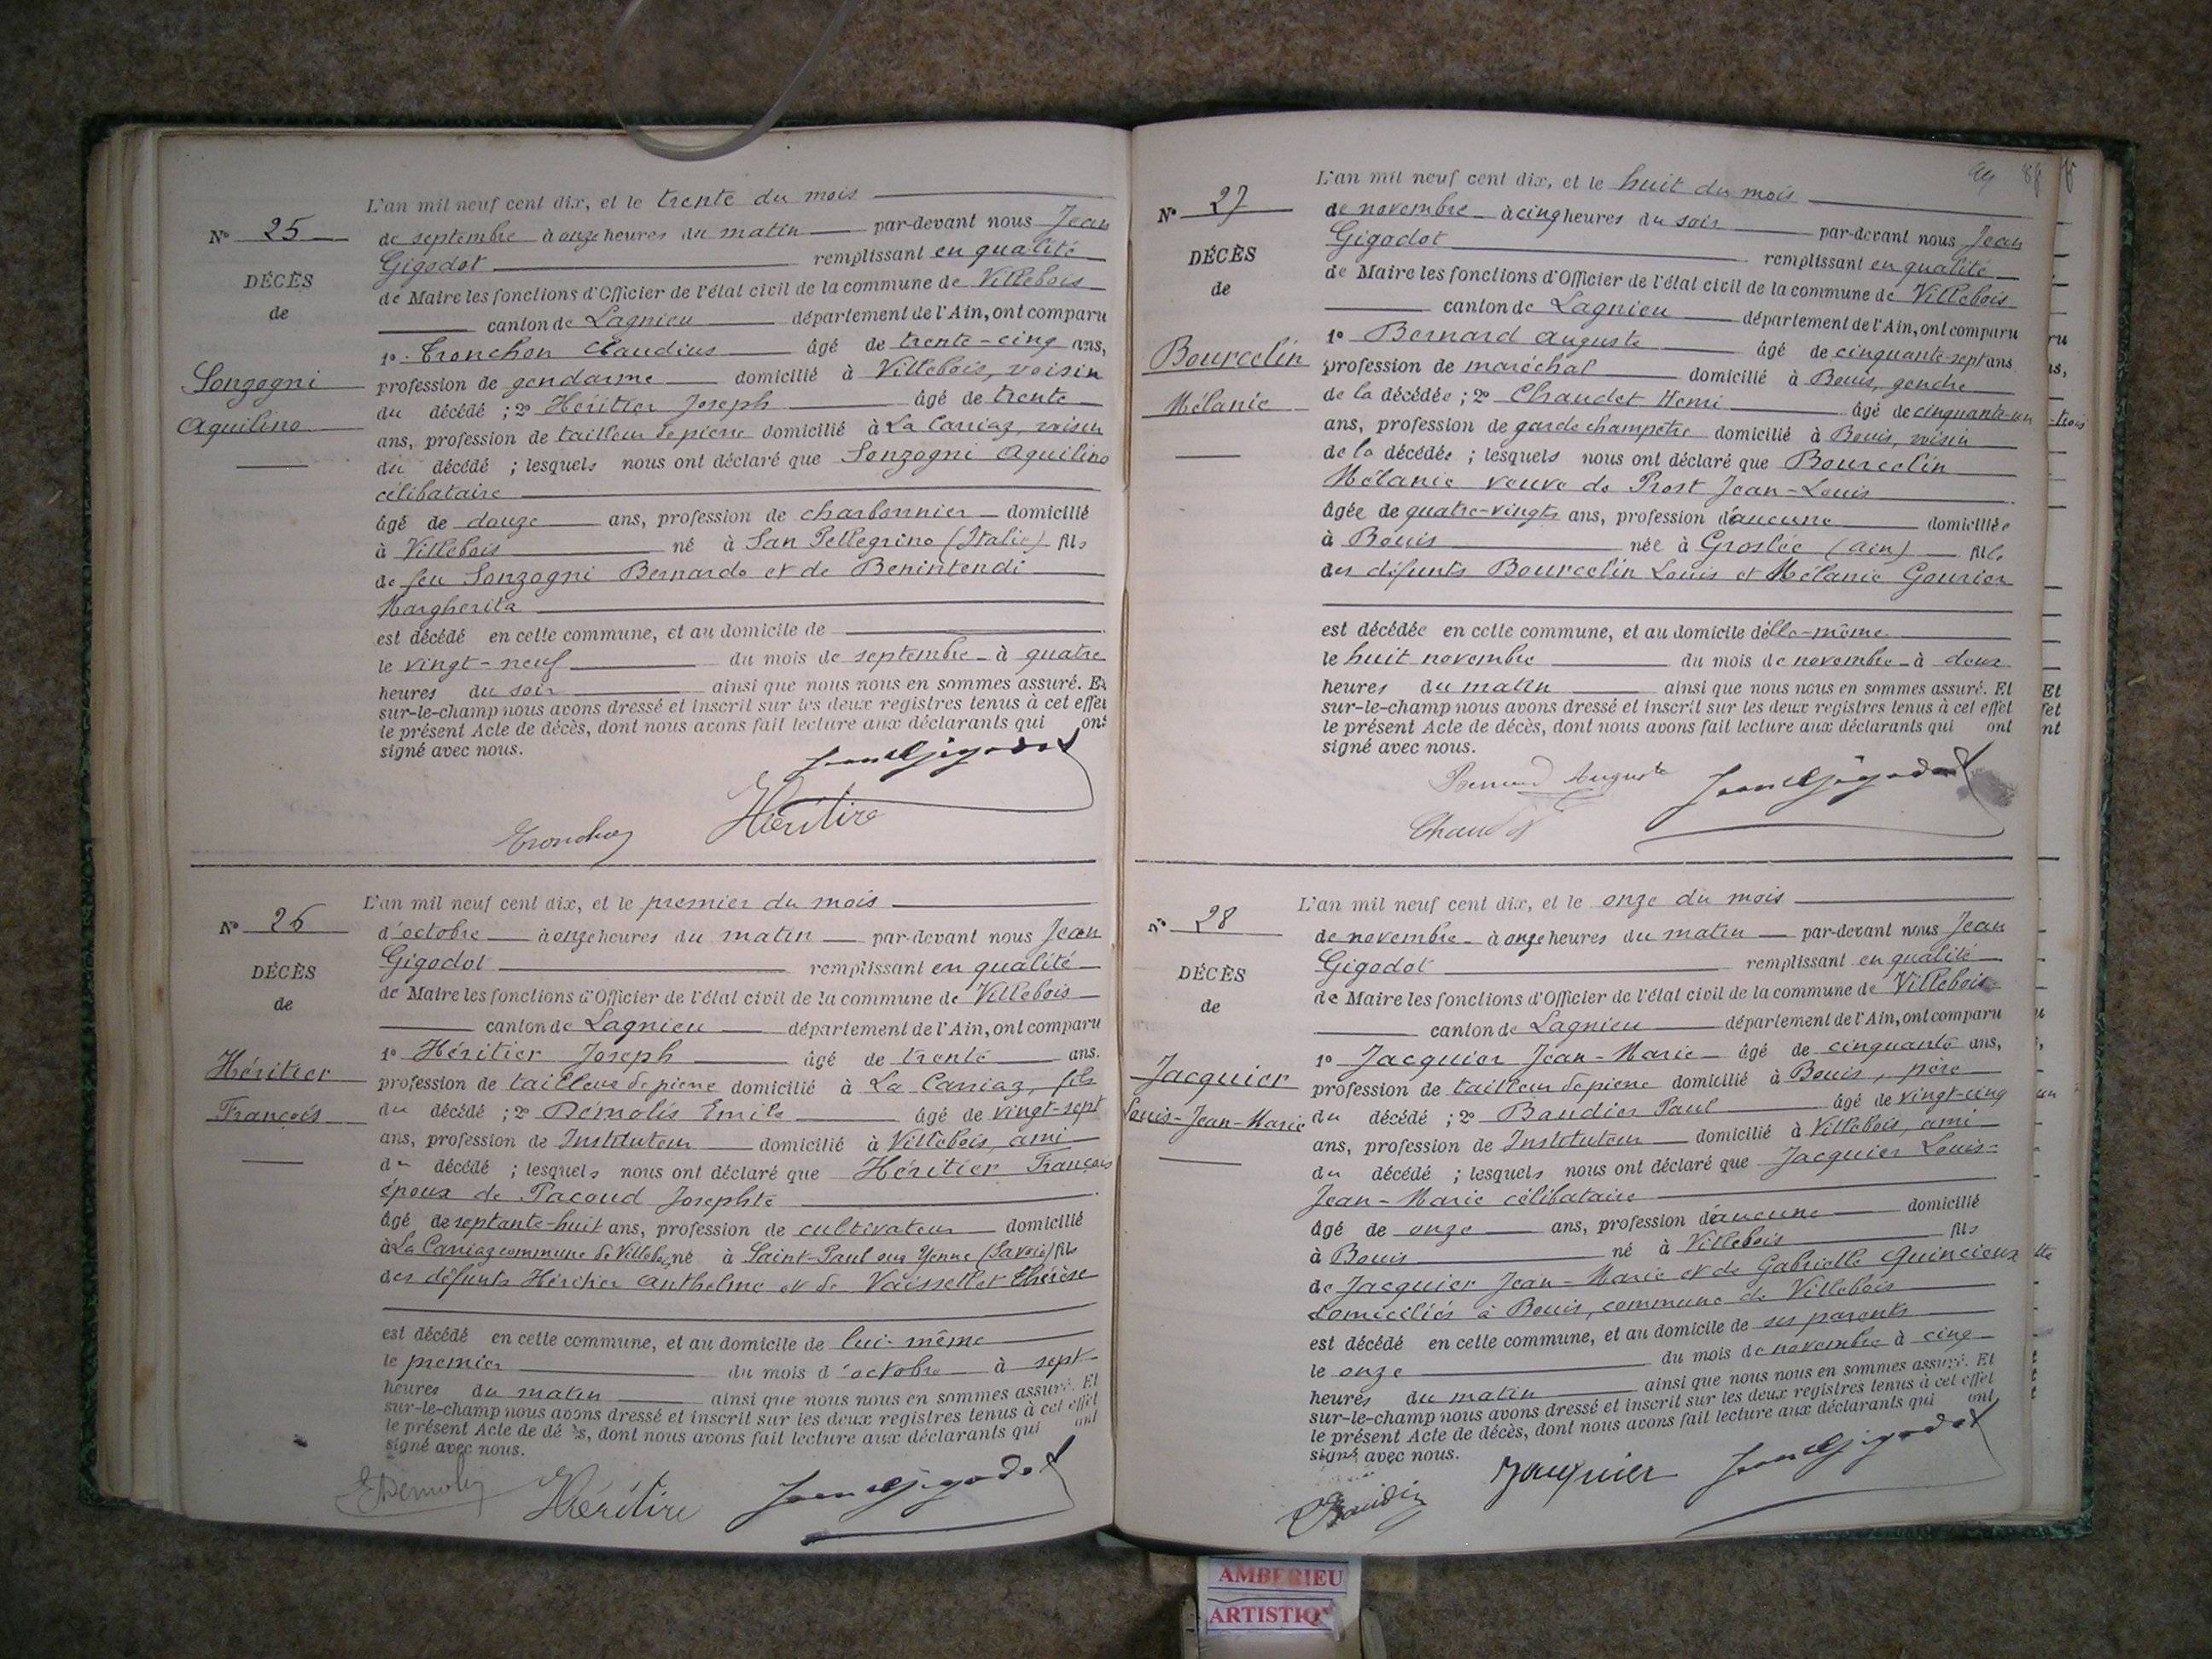 N° 25
DÉCÈS
de
Sonzogni
Aquilino
L'an mil neuf cent dix, et le trente du mois
de septembre à onze heures du matin par-devant nous Jean
Gigodot remplissant en qualité
de Maire les fonctions d'Officier de l'état civil de la commune de Villebois
canton de Lagnieu département de l'Ain, ont comparu
1° Tronchon Claudius âgé de trente-cinq ans,
profession de gendarme domicilié à Villebois, voisin
du décédé ; 2° Héritier Joseph âgé de trente
ans, profession de tailleur de pierre domicilié à La Carriaz, voisin
du décédé ; lesquels nous ont déclaré que Sonzogni Aquilino
célibataire
âgé de douze ans, profession de charbonnier domicilié
à Villebois né à San Pellegrino (Italie) fils
de feu Sonzogni Bernardo et de Benintendi
Margherita
est décédé en cette commune, et au domicile de
le vingt-neuf du mois de septembre à quatre
heures du soir ainsi que nous nous en sommes assuré. Et
sur-le-champ nous avons dressé et inscrit sur les deux registres tenus à cet effet
le présent Acte de décès, dont nous avons fait lecture aux déclarants qui ont
signé avec nous.
Jean Gigodot
Héritire
Tronchon
N° 26
DÉCÈS
de
Héritier
François
L'an mil neuf cent dix, et le premier du mois
d'octobre à onze heures du matin par-devant nous Jean
Gigodot remplissant en qualité
de Maire les fonctions d'Officier de l'état civil de la commune de Villebois
canton de Lagnieu département de l'Ain, ont comparu
1° Héritier Joseph âgé de trente ans.
profession de tailleur de pierre domicilié à La Carriaz, fils
du décédé ; 2° Démolis Emile âgé de vingt-sept
ans, profession de Instituteur domicilié à Villebois, ami
du décédé ; lesquels nous ont déclaré que Héritier François
époux de Pacoud Josephte
âgé de septante-huit ans, profession de cultivateur domicilié
à La Carriaz commune de Villebois né à Saint-Paul sur Yenne (Savoie) fils
des défunts Héritier Anthelme et de Vaissellet Thérèse
est décédé en cette commune, et au domicile de lui-même
le premier du mois d'octobre à sept
heures du matin ainsi que nous nous en sommes assuré. Et
sur-le-champ nous avons dressé et inscrit sur les deux registres tenus à cet effet
le présent Acte de décès, dont nous avons fait lecture aux déclarants qui ont
signé avec nous.
EDemolis Héritire Jean Gigodot
N° 27
DÉCÈS
de
Bourcelin
Mélanie
L'an mil neuf cent dix, et le huit du mois
de novembre à cinq heures du soir par-devant nous Jean
Gigodot remplissant en qualité
de Maire les fonctions d'Officier de l'état civil de la commune de Villebois
canton de Lagnieu département de l'Ain, ont comparu
1° Bernard Auguste âgé de cinquante-sept ans
profession de maréchal domicilié à Bouis, gendre
de la décédée ; 2° Chaudet Henri âgé de cinquante-un
ans, profession de garde champêtre domicilié à Bouis, voisin
de la décédée ; lesquels nous ont déclaré que Bourcelin
Mélanie veuve de Prost Jean-Louis
âgée de quatre-vingts ans, profession d'aucune domiciliée
à Bouis née à Groslée (Ain) fille
des défunts Bourcelin Louis et Mélanie Gourier
est décédée en cette commune, et au domicile d'elle-même
le huit novembre du mois de novembre à deux
heures du matin ainsi que nous nous en sommes assuré. Et
sur-le-champ nous avons dressé et inscrit sur les deux registres tenus à cet effet
le présent Acte de décès, dont nous avons fait lecture aux déclarants qui ont
signé avec nous.
Bernard Auguste Jean Gigodot
Chaudet
N° 28
DÉCÈS
de
Jacquier
Louis-Jean-Marie
L'an mil neuf cent dix, et le onze du mois
de novembre à onze heures du matin par-devant nous Jean
Gigodot remplissant en qualité
de Maire les fonctions d'Officier de l'état civil de la commune de Villebois
canton de Lagnieu département de l'Ain, ont comparu
1° Jacquier Jean-Marie âgé de cinquante ans,
profession de tailleur de pierre domicilié à Bouis, père
du décédé ; 2° Baudier Paul âgé de vingt-cinq
ans, profession de Instituteur domicilié à Villebois, ami
du décédé ; lesquels nous ont déclaré que Jacquier Louis-
Jean-Marie célibataire
âgé de onze ans, profession d'aucune domicilié
à Bouis né à Villebois fils
de Jacquier Jean-Marie et de Gabrielle Quincieux
domiciliés à Bouis, commune de Villebois
est décédé en cette commune, et au domicile de ses parents
le onze du mois de novembre à cinq
heures du matin ainsi que nous nous en sommes assuré. Et
sur-le-champ nous avons dressé et inscrit sur les deux registres tenus à cet effet
le présent Acte de décès, dont nous avons fait lecture aux déclarants qui ont
signé avec nous.
Jacquier Jean Gigodot
AMBERIEU
ARTISTIQ